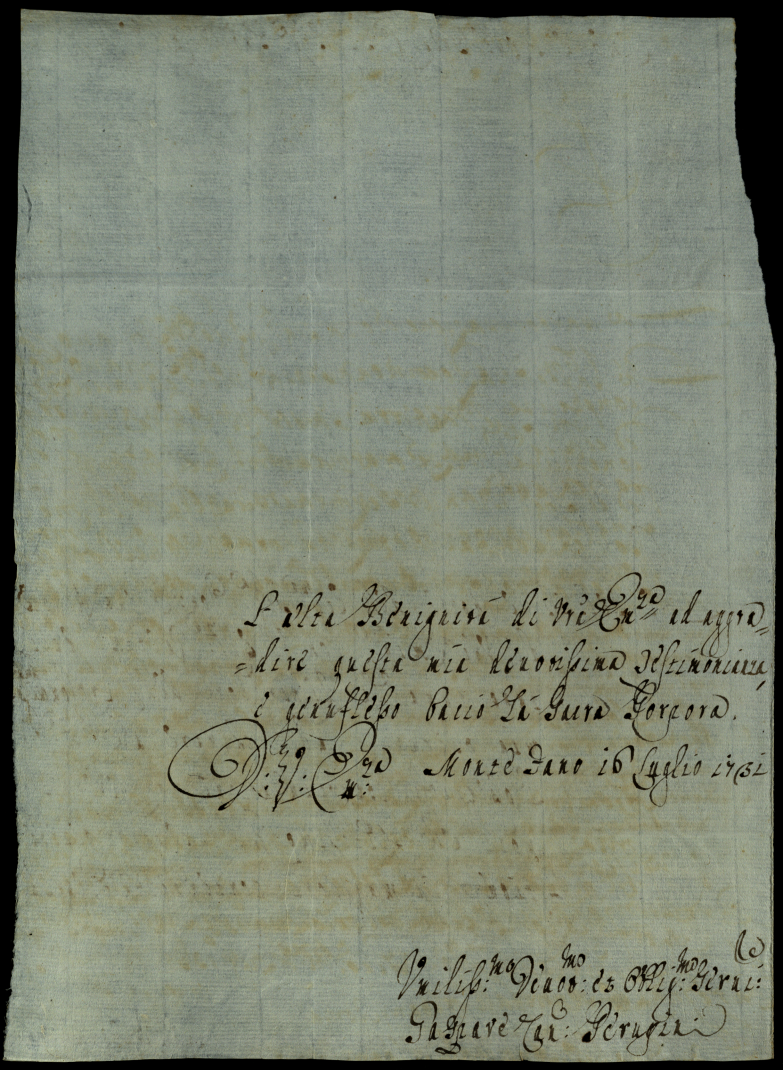 l'alta Benignità di Vrã Em:za ad aggra=
=dire questa mia deuotissima Testimonianza,
e genuflesso bacio La Sacra Porpora.
D: V: Em:za Monte Dano 16 Luglio 1731
Umiliss:mo Deuot:mo et Obblig:mo Serui:re
Gaspare Cau: Perugini